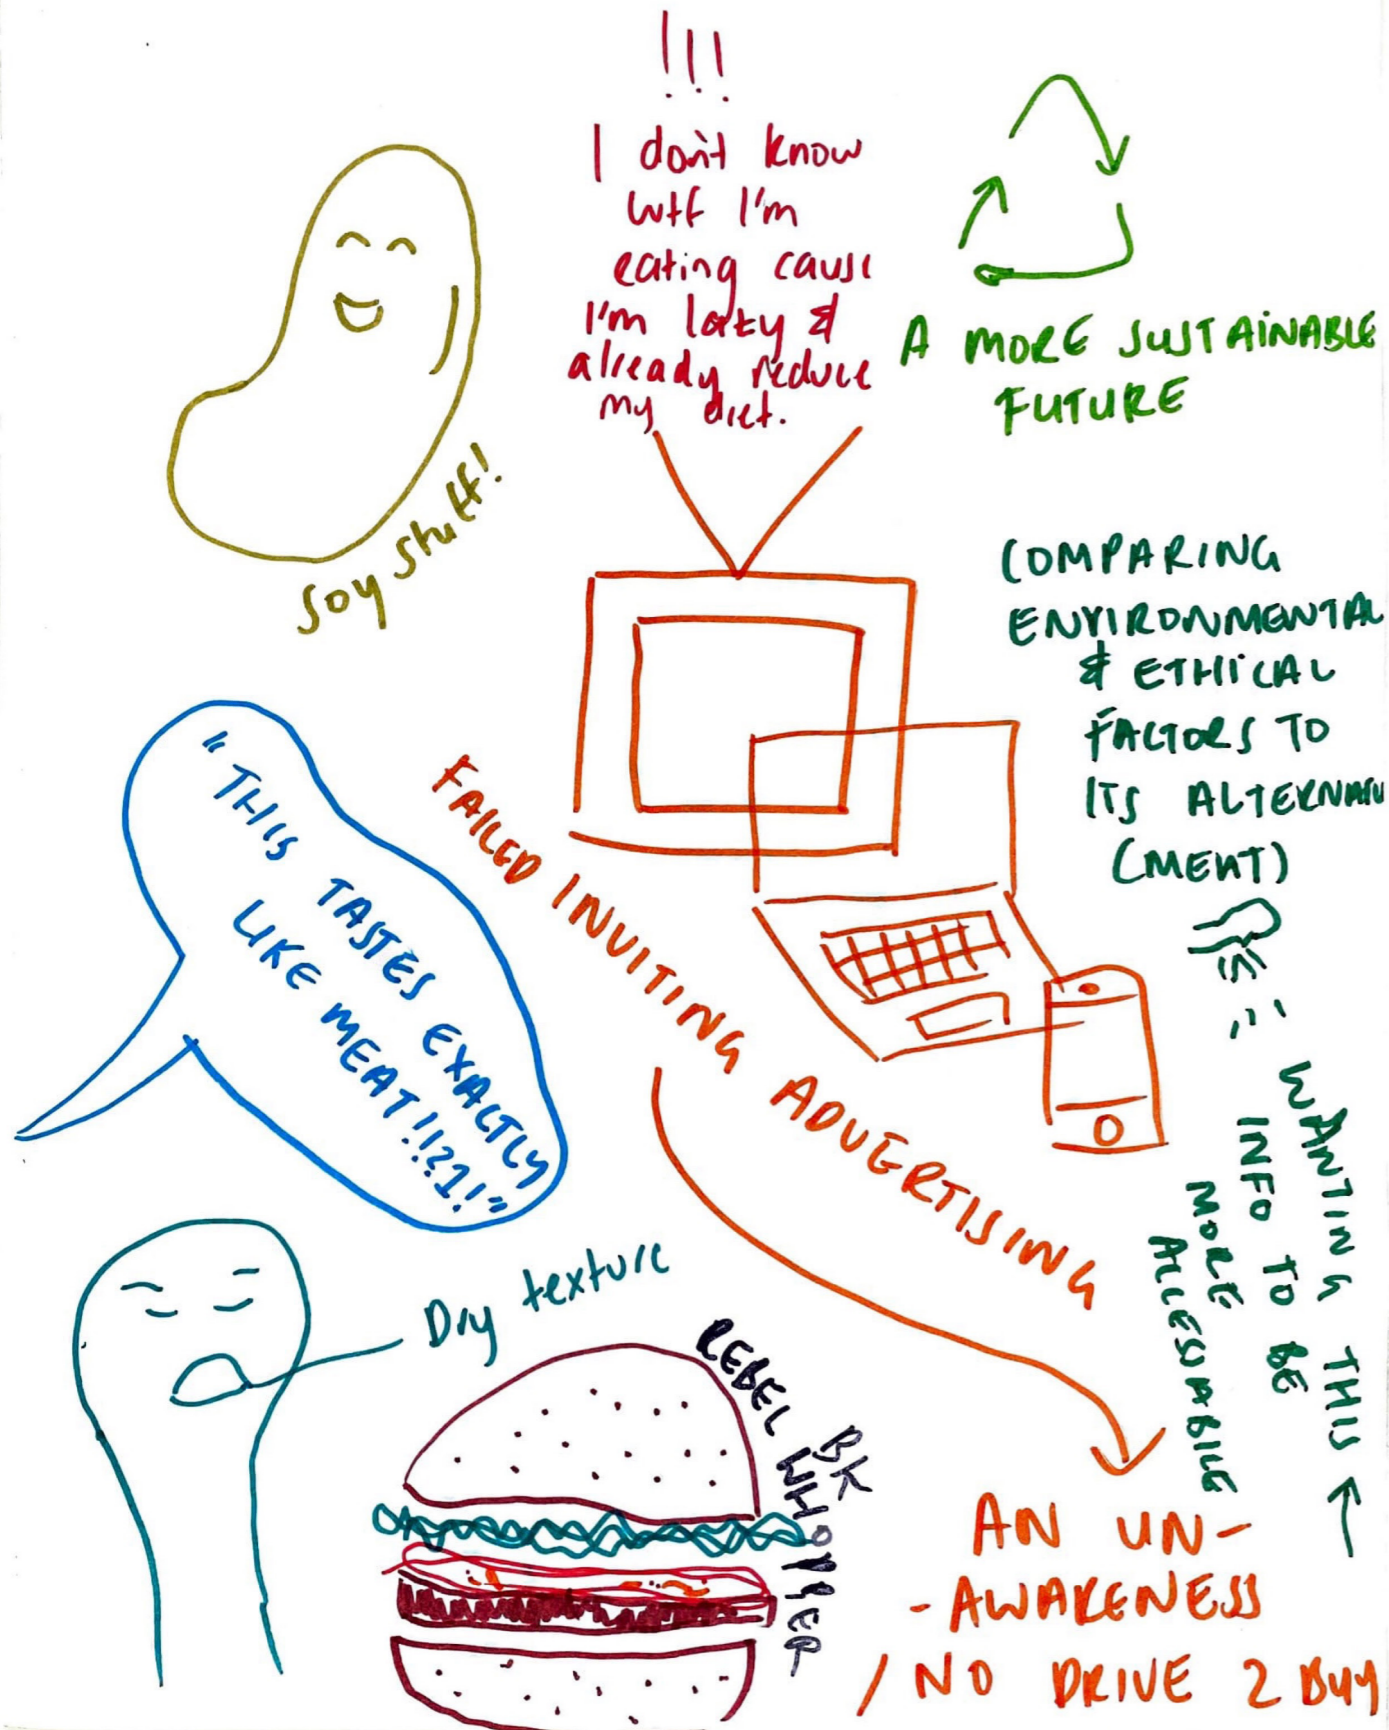 !!!
I don't know
wtf I'm
eating cause
I'm lazy &
already reduce
my diet.
A MORE SUSTAINABLE
FUTURE
soy stuff!
COMPARING
ENVIRONMENTAL
& ETHICAL
FACTORS TO
ITS ALTERNATIV
(MEAT)
"THIS TASTES EXACTLY
LIKE MEAT!!?1!"
FAILED INVITING ADVERTISING
WANTING THIS
INFO TO BE
MORE
ACCESSABILE
Dry texture
BK
REBEL WHOPPER
AN UN-
-AWARENESS
/NO DRIVE 2 BUY